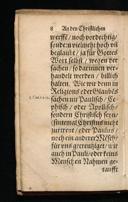 8 An den Christlichen
werffe / noch verdächtig /
sondern vielmehr hoch und
beglaubt / ja für Gottes
Wort selbst / wegen der
sachen / so darinnen ver-
handelt werden / billich
halten. Wie wir denn in
Religions oder Glaubens
sachen nit Paulisch / Ce-
phisch / oder Apollisch /
sondern Christisch
nit
noch ein anderer Mensch
für uns gecreutziget / wir
auch in Pauli / oder keins
Menschen Nahmen ge-
taufft